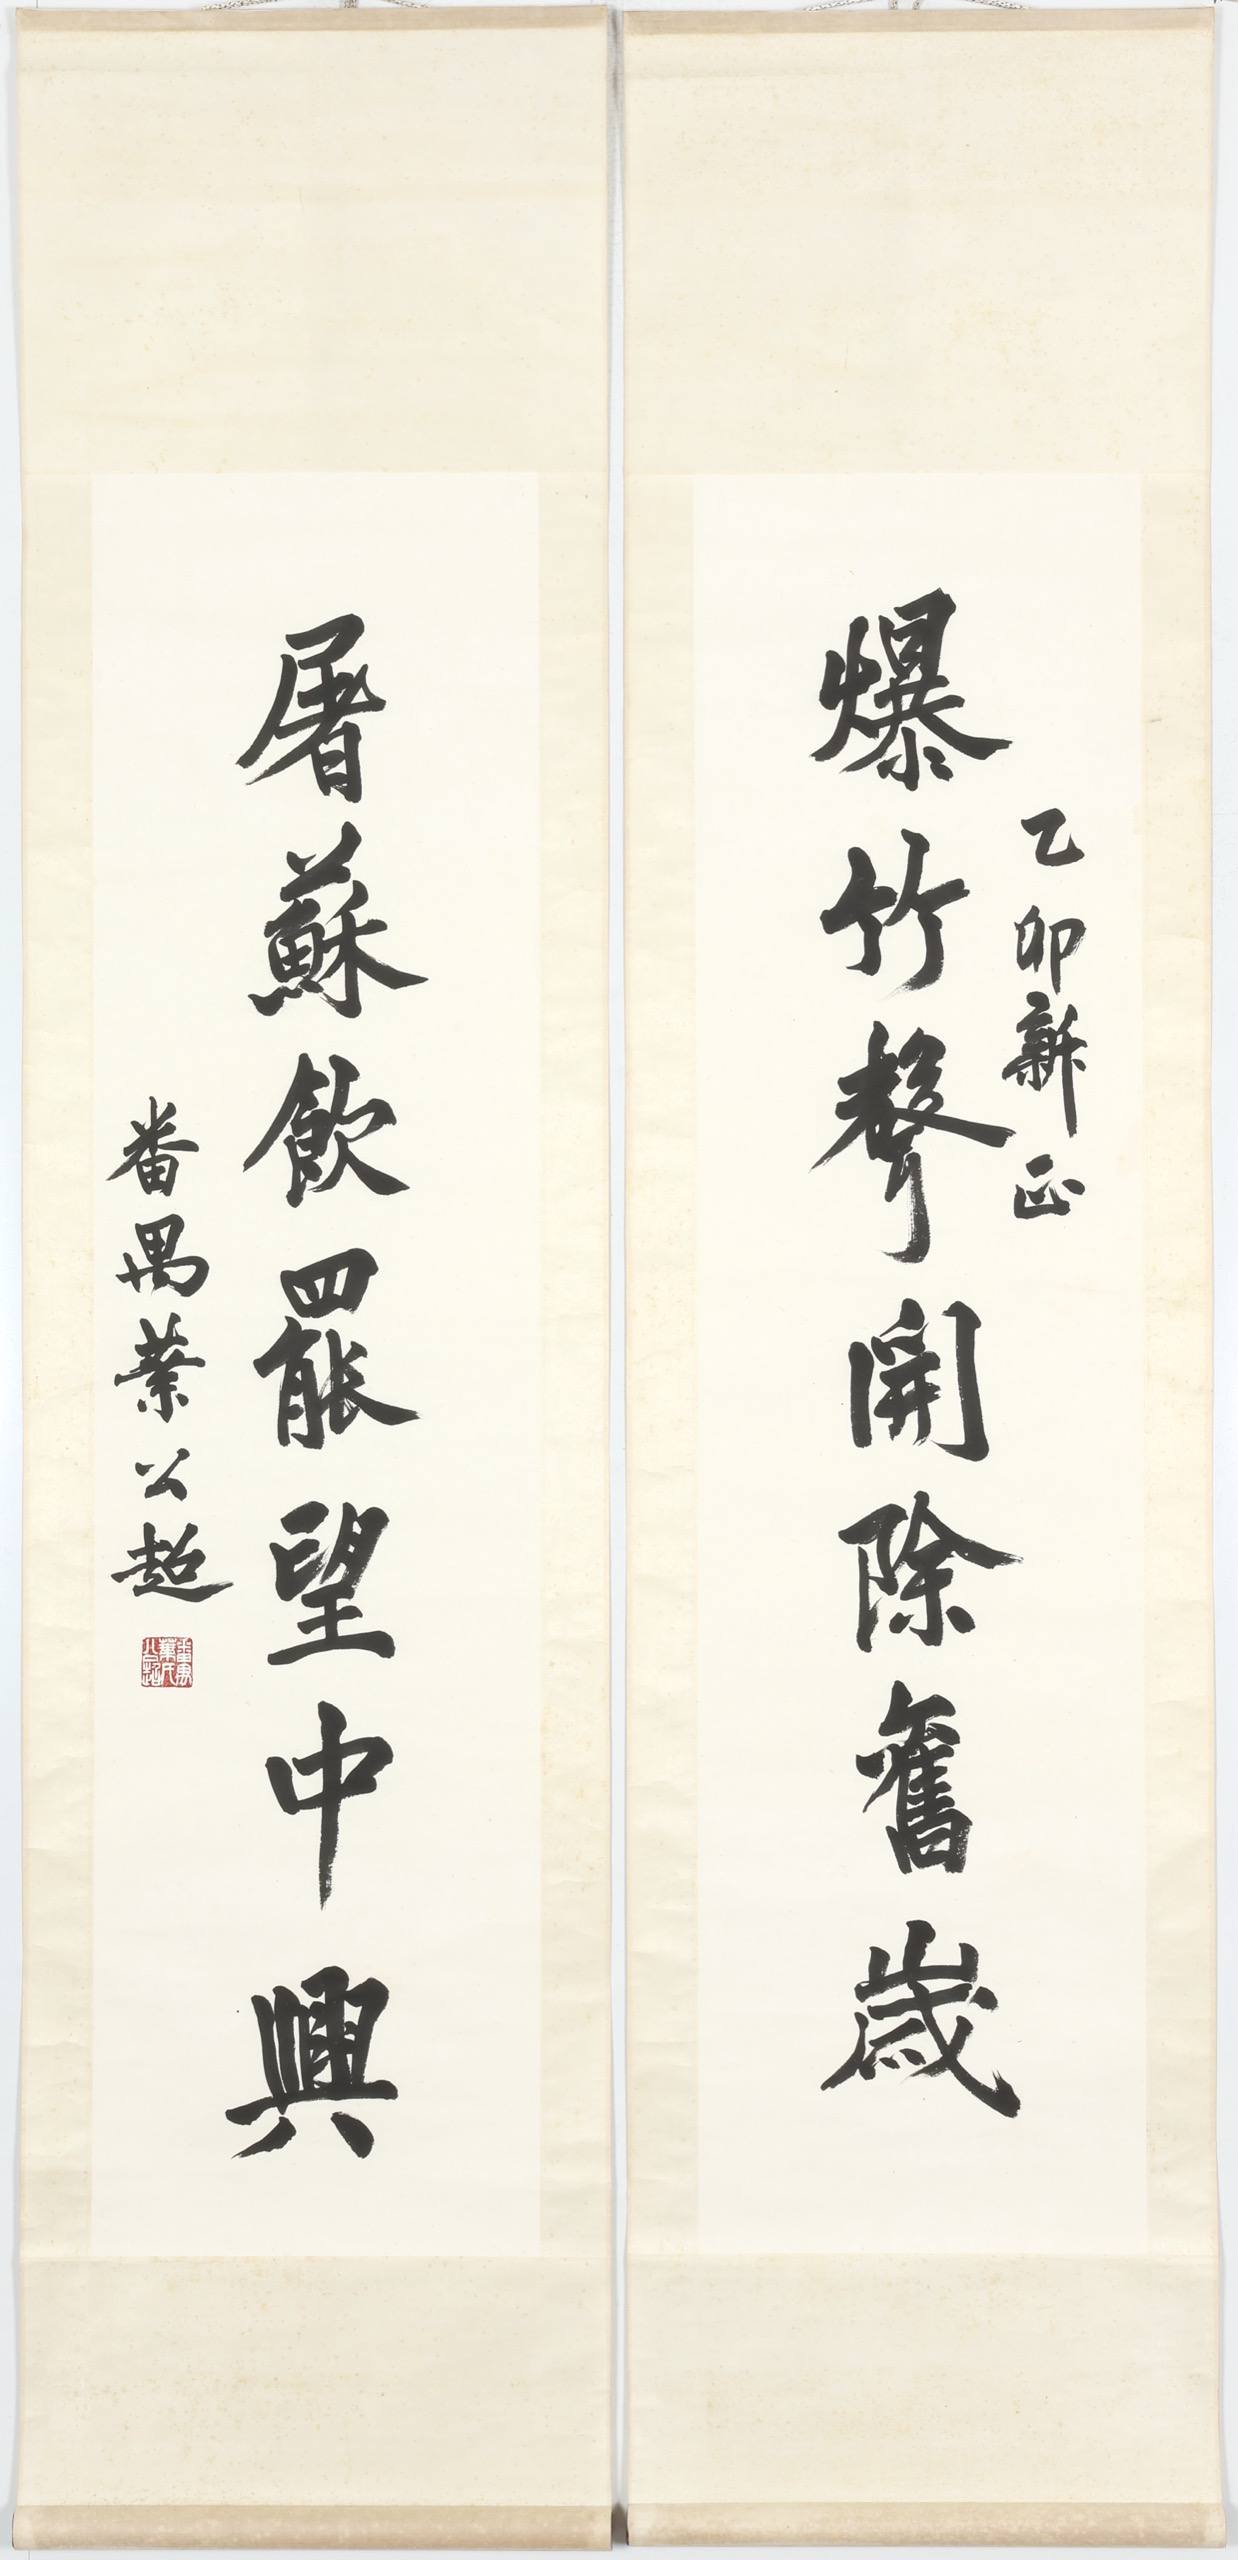 乙卯新正
爆竹聲開除舊歲
屠蘇飲罷望中興
番禺葉公超
番禺葉氏公超